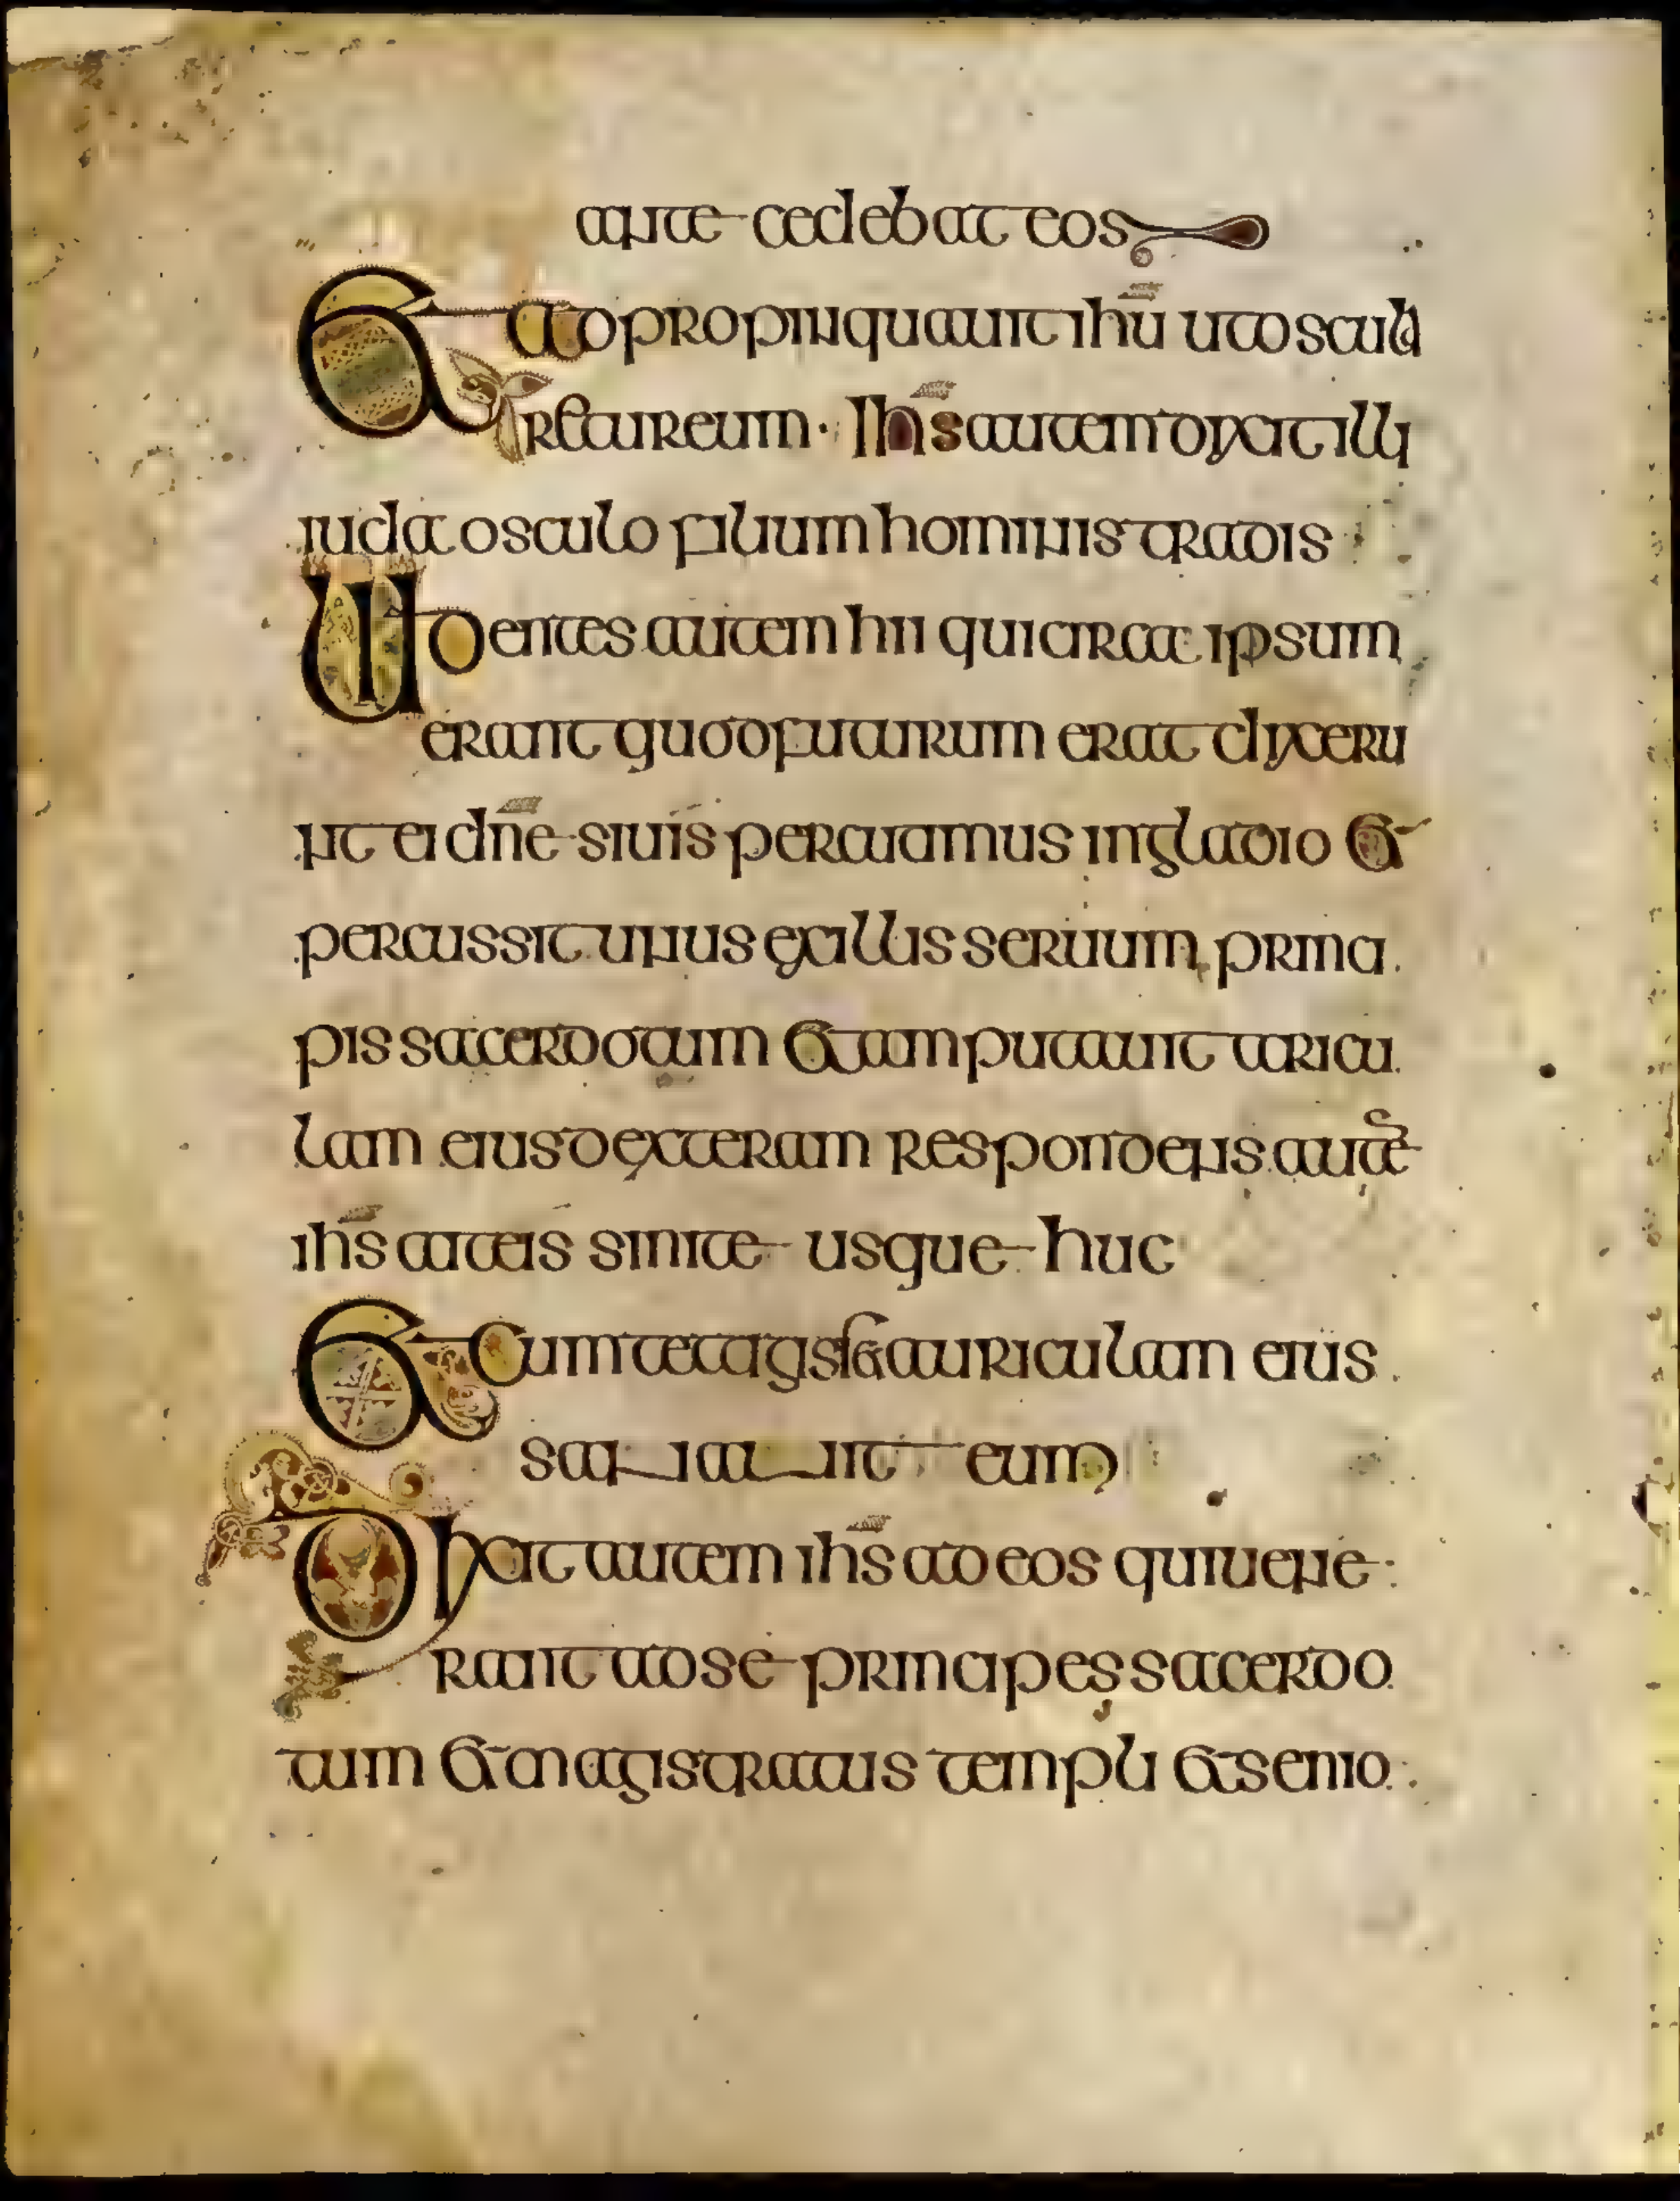 ante cedebat eos
Et adpropinquauit ihū ut oscula
retur eum · Ihs̄ autem dixit illi
iuda osculo filium hominis tradis
Uidentes autem hii qui circa ipsum
erant quod futurum erat dixeru
nt ei dn̄e si uis percutiamus in gladio et
percussit unus ex illis seruum prínci
pis sacerdotum et amputauit auricu
lam eius dexteram respondens autē
ihs̄ ait eis sinite usque huc
Et cum tetagisset auriculam eius
sanauit eum
Dixit autem ihs̄ ad eos qui uene
rant ad se principes sacerdo
tum et magistratus templi et senio